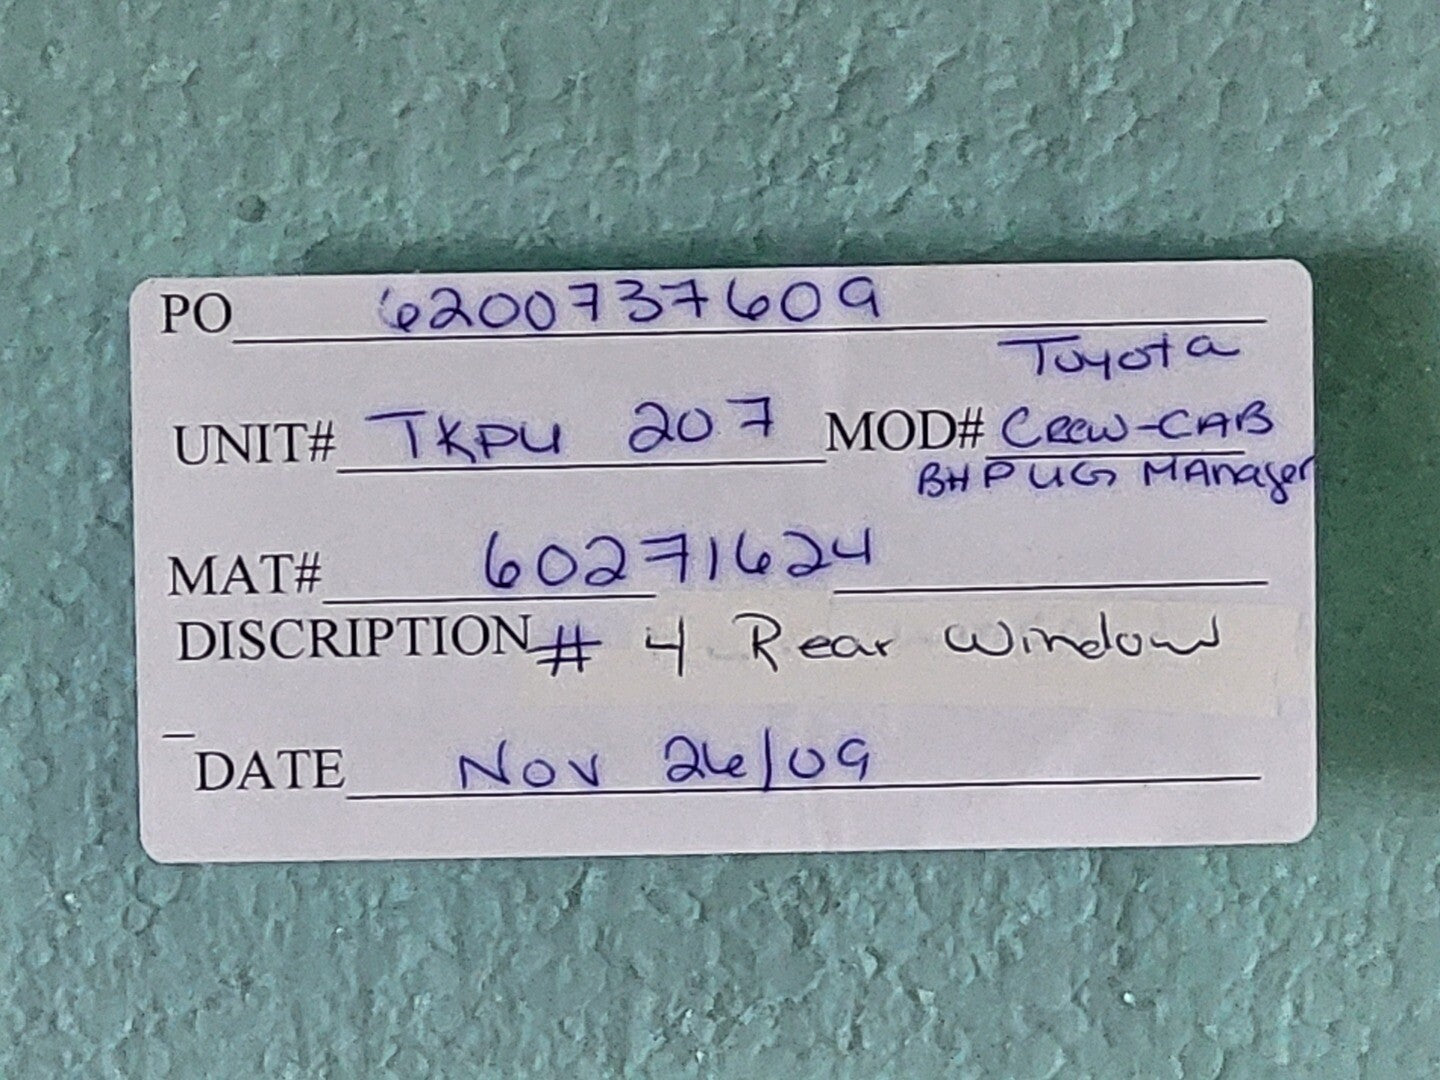 PO 6200737609
Toyota
UNIT# TKPU 207 MOD# CREW-CAB
BHP UG MANAger
MAT# 60271624
DISCRIPTION # 4 Rear Window
DATE Nov 26/09